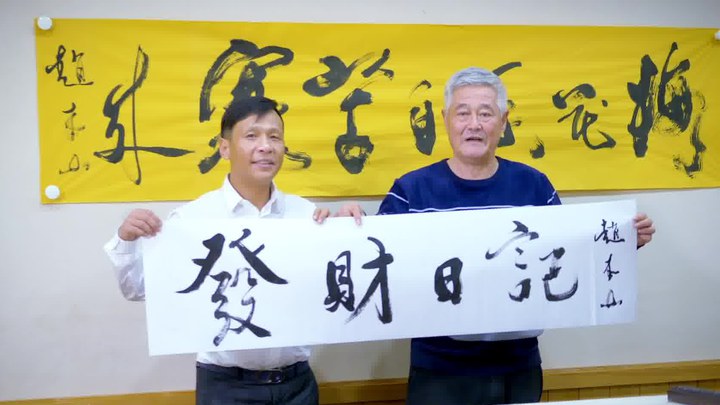 梅花香自苦寒來
趙本山
發財日記
趙本山